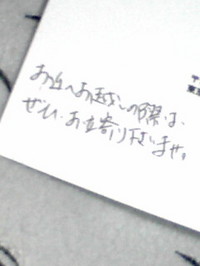 お近へお越しの際は、
ぜひお立寄り下さいませ。